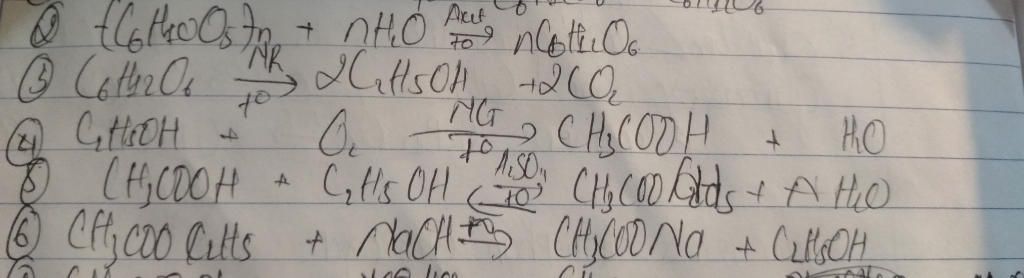 ② (C6H10O5)n + nH2O Axit t° → nC6H12O6
③ C6H12O6 MR t° → 2C2H5OH + 2CO2
④ C2H5OH + O2 MG t° → CH3COOH + H2O
⑤ CH3COOH + C2H5OH H2SO4 t° ⇌ CH3COO + H2O
⑥ CH3COOC2H5 + NaOH t° → CH3COONa + C2H5OH